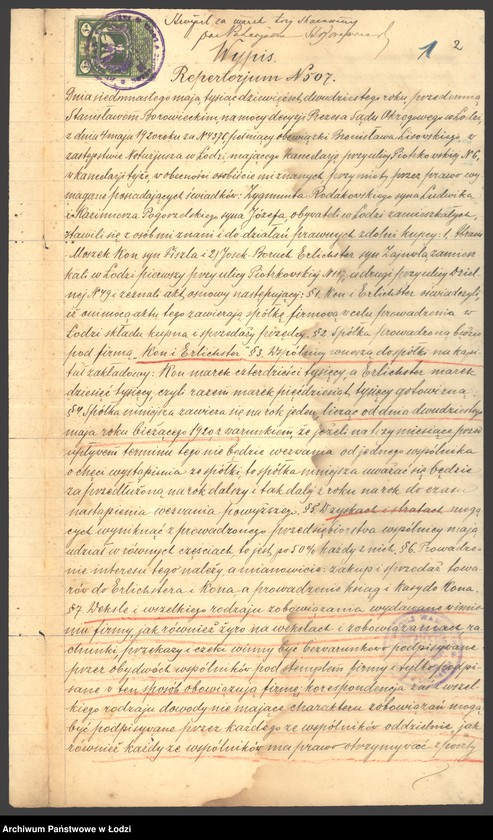 1 2
Wypis.
Repertorjum № 507.
Dnia siedmnastego maja tysiąc dziewięćset dwudziestego roku, przedemną
Stanisławem Borowieckim, na mocy decyzji Prezesa Sądu Okręgowego w Łodzi,
z dnia 4 maja 1920 roku za № pełniący obowiązki Bronisława Lisowskiego, w
zastępstwie Notarjusza w Łodzi, mającego kancelarję przy ulicy Piotrkowskiej № 6,
w kancelarji tejże, w obecności osobiście mi znanych przymioty przez prawo wy-
magane posiadających świadków: Zygmunta Rodakowskiego syna Ludwika
i Kazimierza Pogorzelskiego syna Józefa, obywateli w Łodzi zamieszkałych,
stawili się z osoby mi znani i do działań prawnych zdolni kupcy: 1, Abram
Moszek Kon syn Fiszla i 2) Josek Boruch Erlichster syn Zajnwla, zamiesz-
kali w Łodzi pierwszy przy ulicy Piotrkowskiej № a drugi przy ulicy Dziel-
nej № 49 i zeznali akt osnowy następującej: § 1. Kon i Erlichster oświadczyli,
iż na mocy aktu tego zawierają spółkę firmową w celu prowadzenia w
Łodzi składu kupna i sprzedaży przędzy. § 2. Spółka prowadzoną będzie
pod firmą „Kon i Erlichster" § 3. Wspólnicy wnoszą do spółki na kapi-
tał zakładowy: Kon marek czterdzieści tysięcy, a Erlichster marek
dziesięć tysięcy, czyli razem marek pięćdziesiąt tysięcy gotowizną.
§ 4. Spółka niniejsza zawiera się na rok jeden, licząc od dnia dwudziestego
maja roku bieżącego 1920 z warunkiem, że jeżeli na trzy miesiące przed
upływem terminu tego nie będzie wezwania od jednego wspólnika
o chęci wystąpienia ze spółki, to spółka niniejsza uważać się będzie
za przedłużoną na rok dalszy i tak dalej z roku na rok do czasu
nastąpienia wezwania powyższego. § 5. W zyskach i stratach mogą-
cych wyniknąć z prowadzonego przedsiębiorstwa wspólnicy mają
udział w równych częściach, to jest po 50% każdy z nich. § 6. Prowadze-
nie interesu tego należy, a mianowicie: zakup i sprzedaż towa-
rów do Erlichstera i Kona, a prowadzenie ksiąg i kasy do Kona.
§ 7. Weksle i wszelkiego rodzaju zobowiązania wydawane w imie-
niu firmy, jak również żyro na wekslach i zobowiązaniach, ra-
chunki, przekazy i czeki winny być bezwarunkowo podpisywane
przez obydwóch wspólników pod stemplem firmy i tylko podpi-
sane w ten sposób obowiązują firmę; korespondencja zaś wszel-
kiego rodzaju dowody nie mające charakteru zobowiązań mogą
być podpisywane przez każdego ze wspólników oddzielnie, jak
również każdy ze wspólników ma prawo otrzymywać z poczty
Archiwum Państwowe w Łodzi